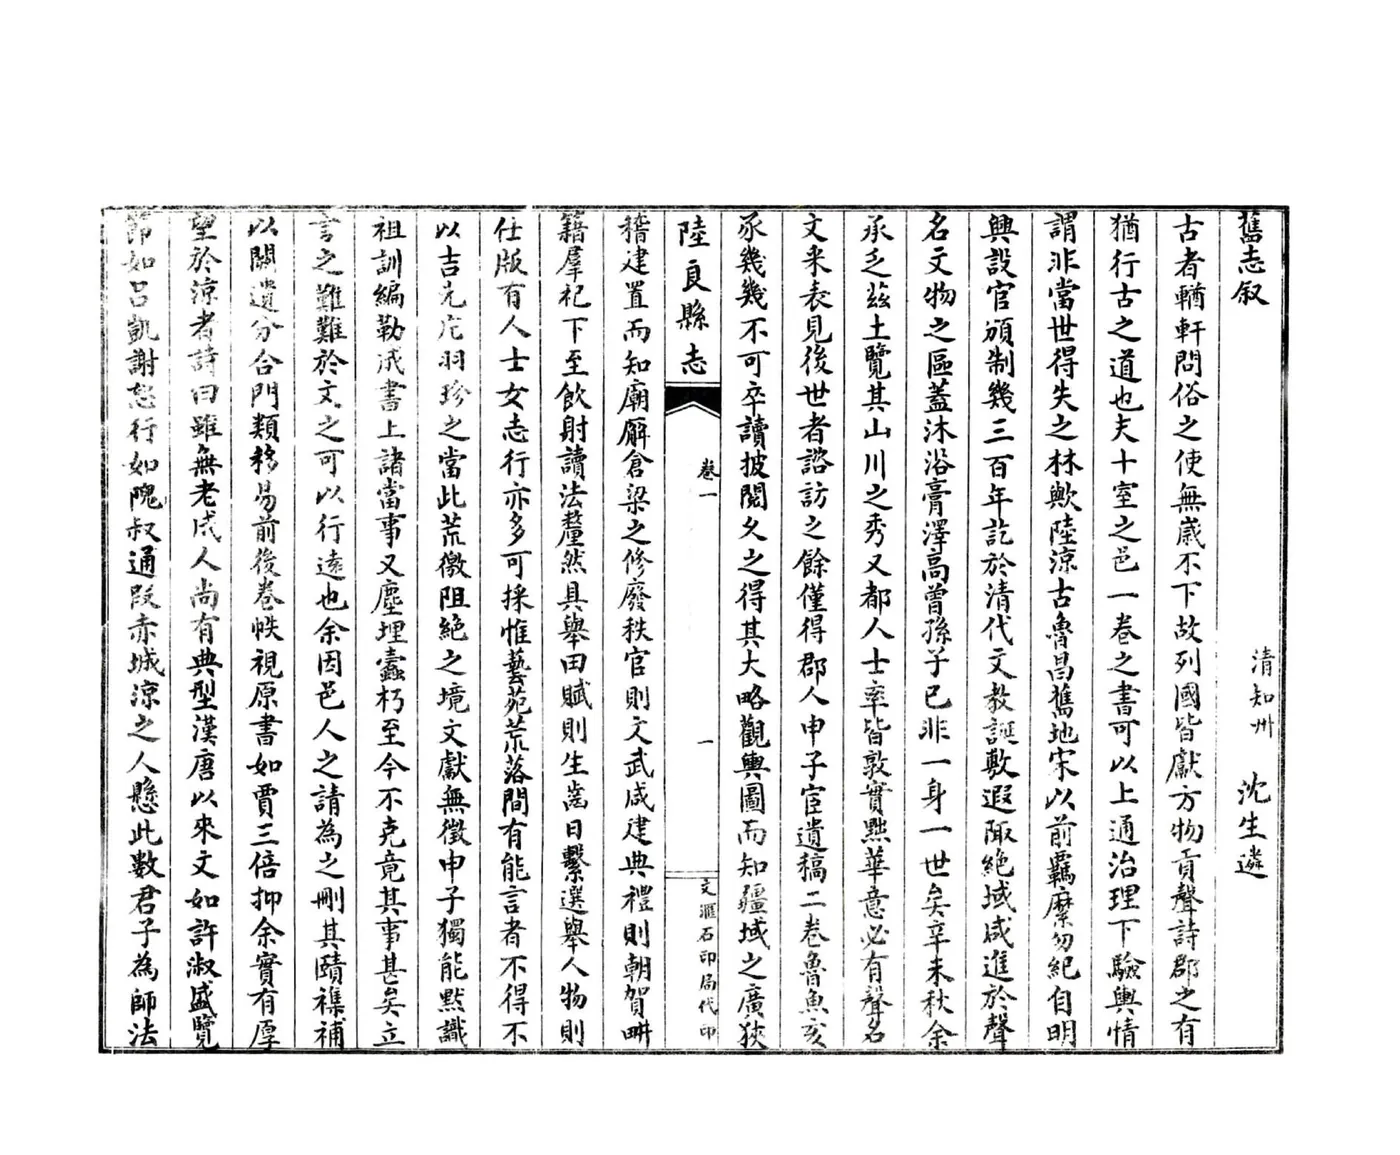 舊志叙
清知州　沈生遴
古者輶軒問俗之使無歲不下故列國皆獻方物貢聲詩郡之有
猶行古之道也夫十室之邑一卷之書可以上通治理下驗輿情
謂非當世得失之林歟陸涼古魯昌舊地宋以前羈縻勿紀自明
興設官頒制幾三百年訖於清代文教誕敷遐陬絶域咸進於聲
名文物之區蓋沐浴膏澤高曾孫子已非一身一世矣辛未秋余
承乏兹土覽其山川之秀又都人士率皆敦實黜華意必有聲名
文采表見後世者諮訪之餘僅得郡人申子宦遺稿二卷魯魚亥
豕幾幾不可卒讀披閱久之得其大略觀輿圖而知疆域之廣狹
陸良縣志
卷一
一
文滙石印局代印
稽建置而知廟廨倉梁之修廢秩官則文武咸建典禮則朝賀畊
籍羣祀下至飲射讀法釐然具舉田賦則生齒日繫選舉人物則
仕版有人士女志行亦多可採惟藝苑荒落間有能言者不得不
以吉光片羽珍之當此荒徼阻絶之境文獻無徵申子獨能黙識
祖訓編勒成書上諸當事又塵埋蠹朽至今不克竟其事甚矣立
言之難難於文之可以行遠也余因邑人之請為之刪其賾襍補
以闕遺分合門類移易前後卷帙視原書如賈三倍抑余實有厚
望於涼者詩曰雖無老成人尚有典型漢唐以來文如許淑盛覽
節如呂凱謝恕行如隗叔通段赤城涼之人懸此數君子為師法